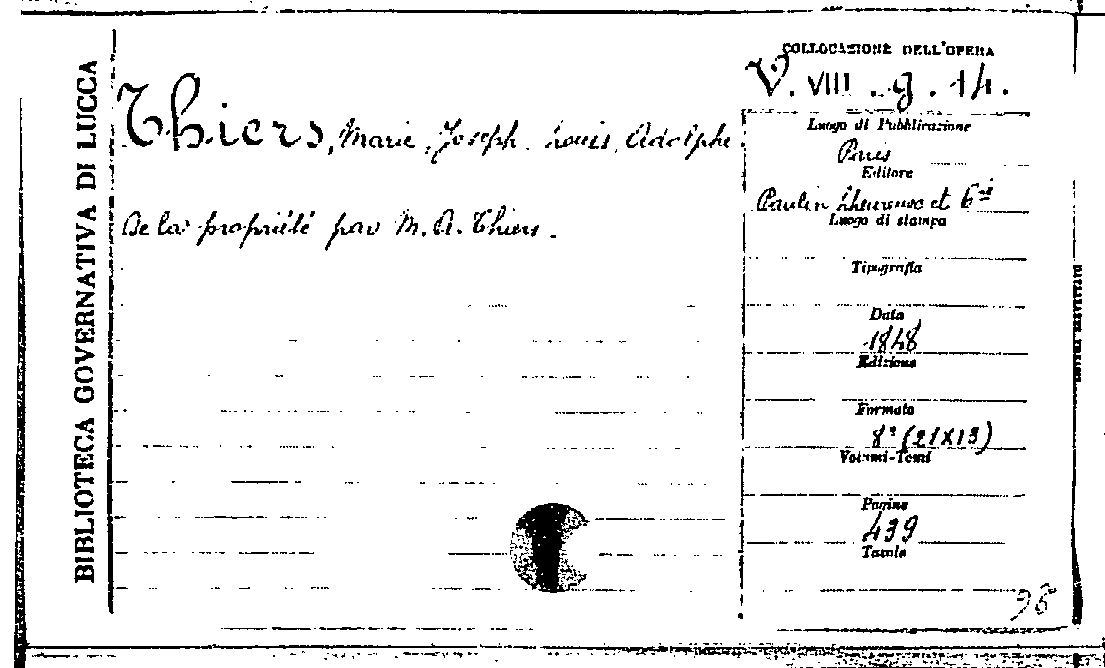 BIBLIOTECA GOVERNATIVA DI LUCCA
Thiers, Marie, Joseph. Louis, Adolphe.
De la propriété par M. A. Thiers.
COLLOCAZIONE DELL'OPERA
V. VIII. g. 14.
Luogo di Pubblicazione
Paris
Editore
Paulin Lheureux et C.ie
Luogo di stampa
Tipografia
Data
1848
Edizione
Formato
8° (21X13)
Volumi-Tomi
Pagine
439
Tavole